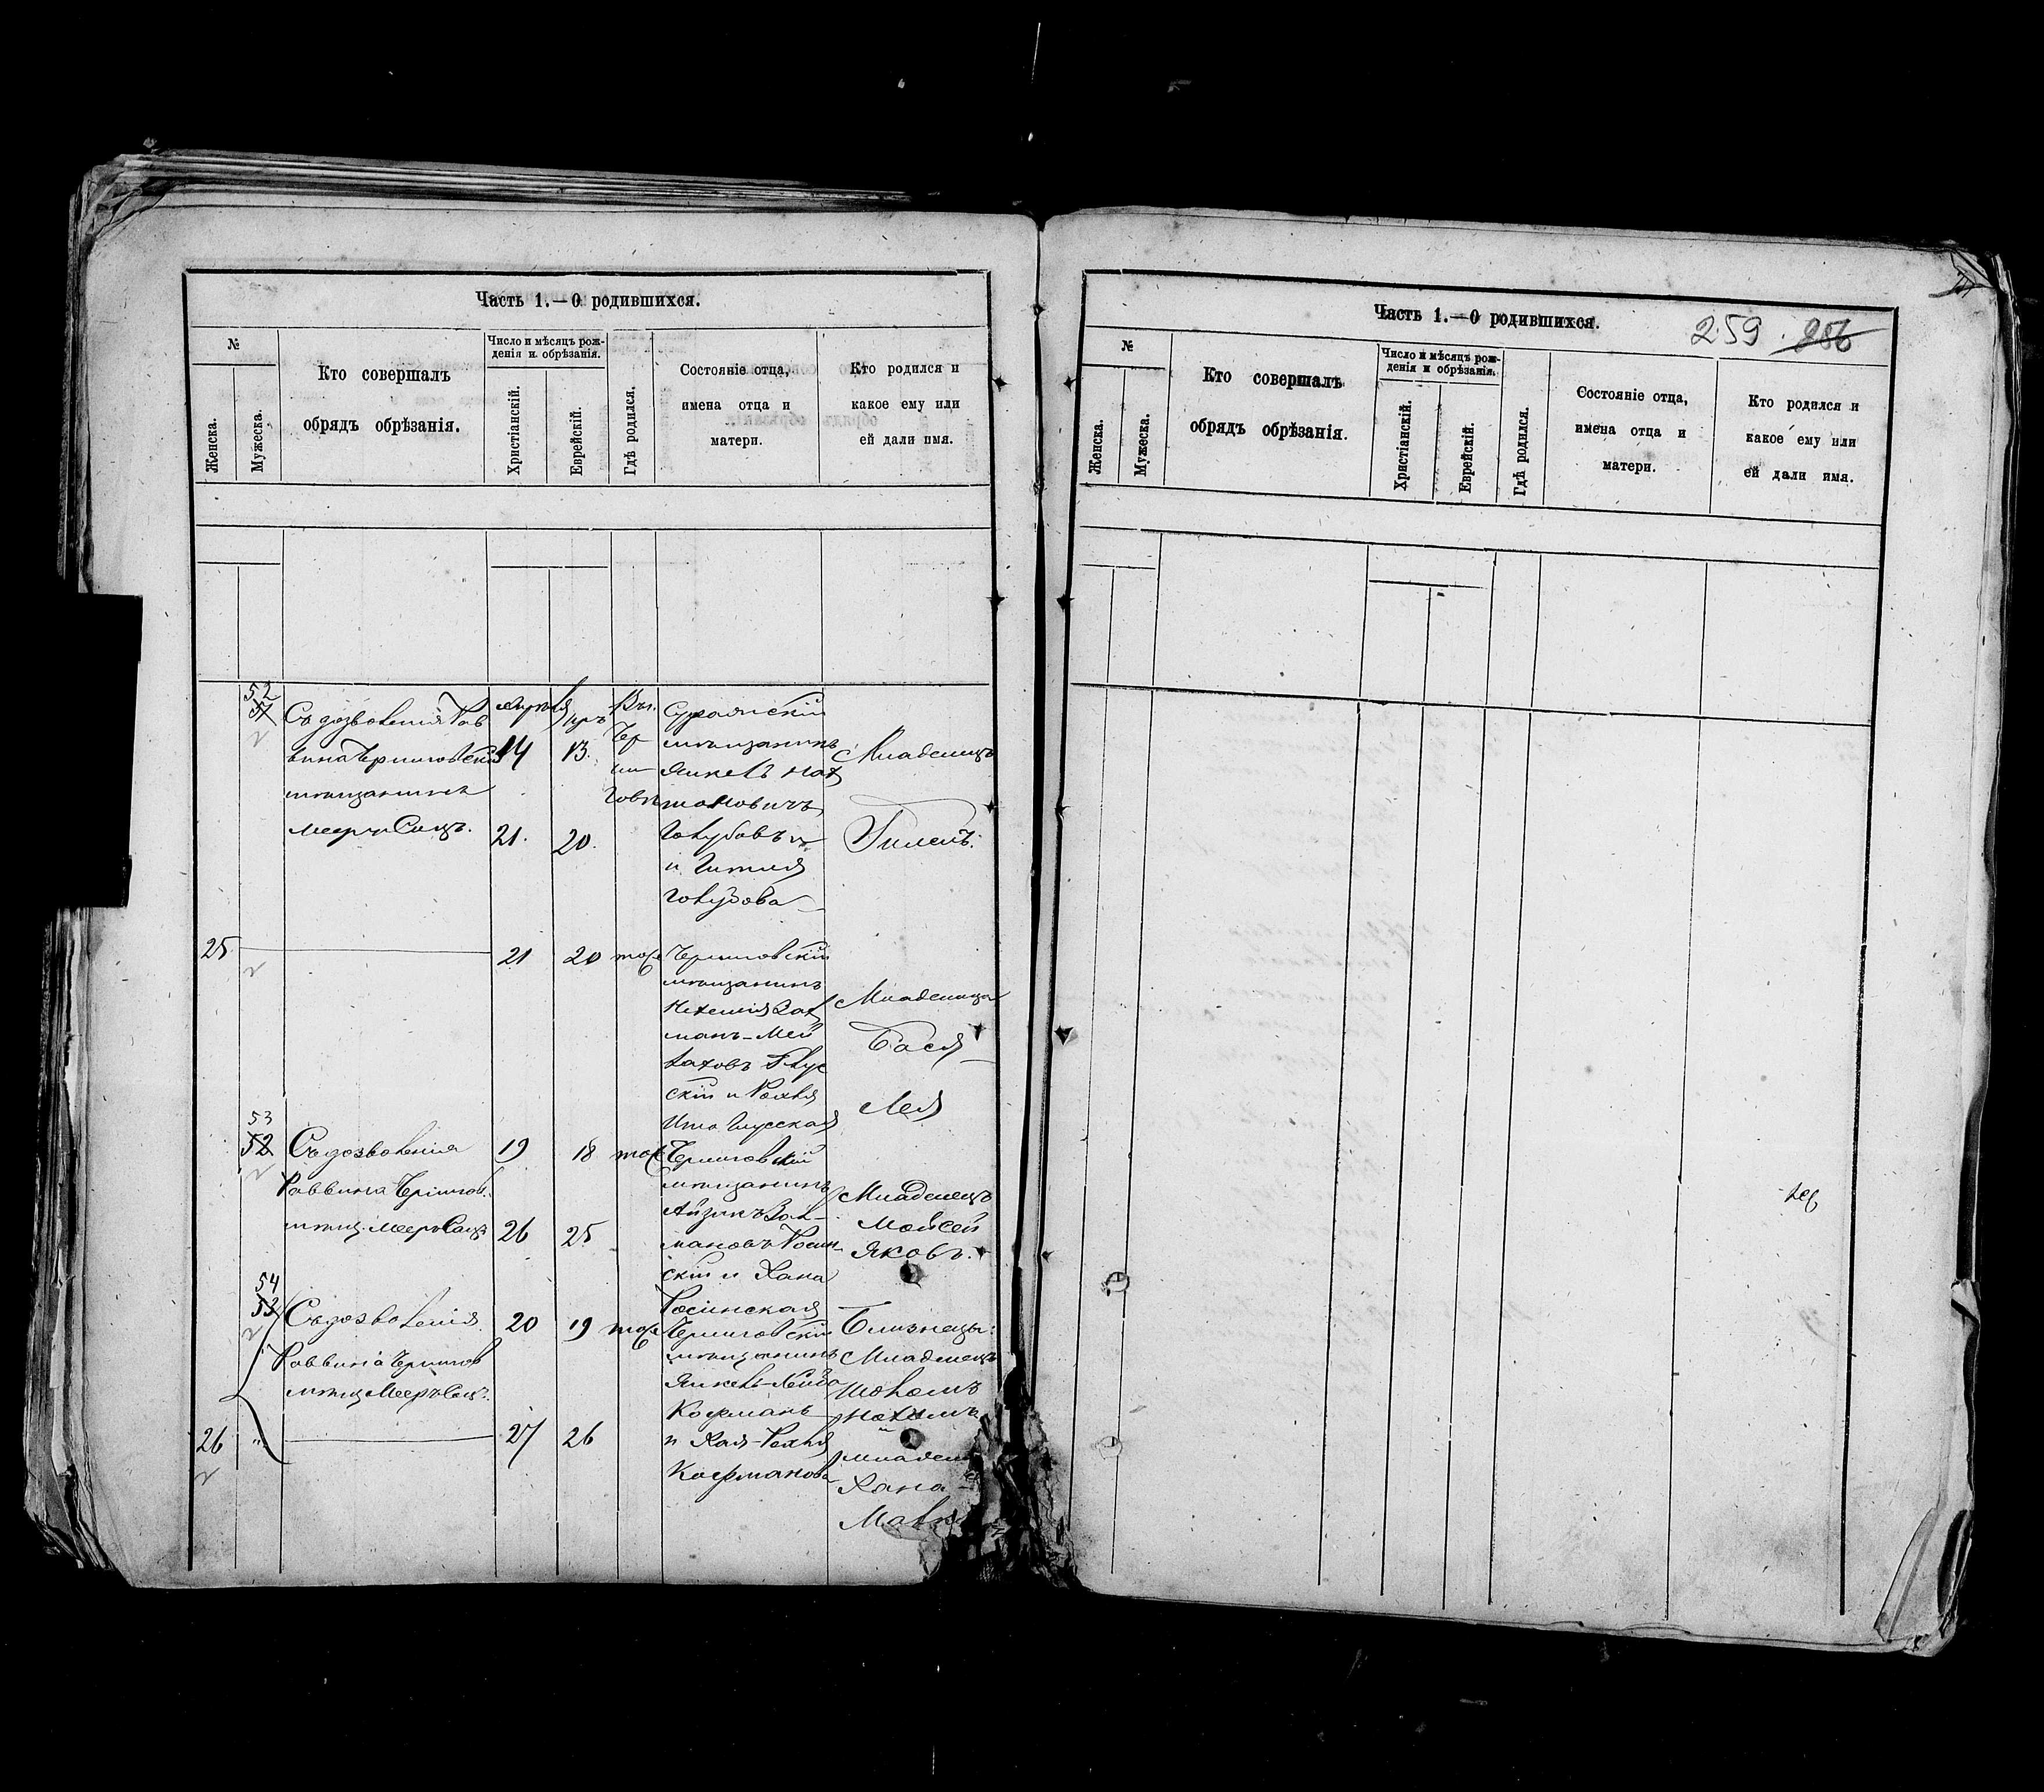 Часть 1.—О родившихся.
№
Женска.
Мужеска.
Кто совершалъ
обрядъ обрѣзанія.
Число и мѣсяцъ рож-
денія и обрѣзанія.
Христіанскій.
Еврейскій.
Гдѣ родился.
Состояніе отца,
имена отца и
матери.
Кто родился и
какое ему или
ей дали имя.
52
51
Съ дозволенія Рав
вина Черниговскій
мѣщанинъ
Мееръ Сацъ.
Апрѣля
14
21.
Іиръ
13.
20.
Въ
Чер
ни
говѣ
Суражскій
мѣщанинъ
Янкель Нот
мановичъ
Голубовъ
и Гитля
Голубова
Младенецъ
Гилелъ.
25
21
20
тоже
Черниговскій
мѣщанинъ
Нехемія Зал
манъ-Мей
лаховъ Глус
скій и Рохля
Ита Глусская
Младеница
Бася
Лея
53
52
Съ дозволенія
Раввина Чернигов.
мѣщ. Мееръ Сацъ
19
26
18
25
тоже
Черниговскій
мѣщанинъ
Айзикъ Зал-
мановъ Росин-
скій и Хана
Росинская
Младенецъ
Мойсей
Яковъ.
54
53
Съ дозволенія
Раввина Чернигов
мѣщ Мееръ Сацъ.
20
19
тоже
Черниговскій
мѣщанинъ
Янкель-Лейба
Кофманъ
и Хая-Рохля
Кофманова
Близнецы:
Младенецъ
Шоломъ
Нохимъ
и
Хана-
26
"
27
26
Часть 1.—О родившихся.
259. 256
№
Женска.
Мужеска.
Кто совершалъ
обрядъ обрѣзанія.
Число и мѣсяцъ рож-
денія и обрѣзанія.
Христіанскій.
Еврейскій.
Гдѣ родился.
Состояніе отца,
имена отца и
матери.
Кто родился и
какое ему или
ей дали имя.